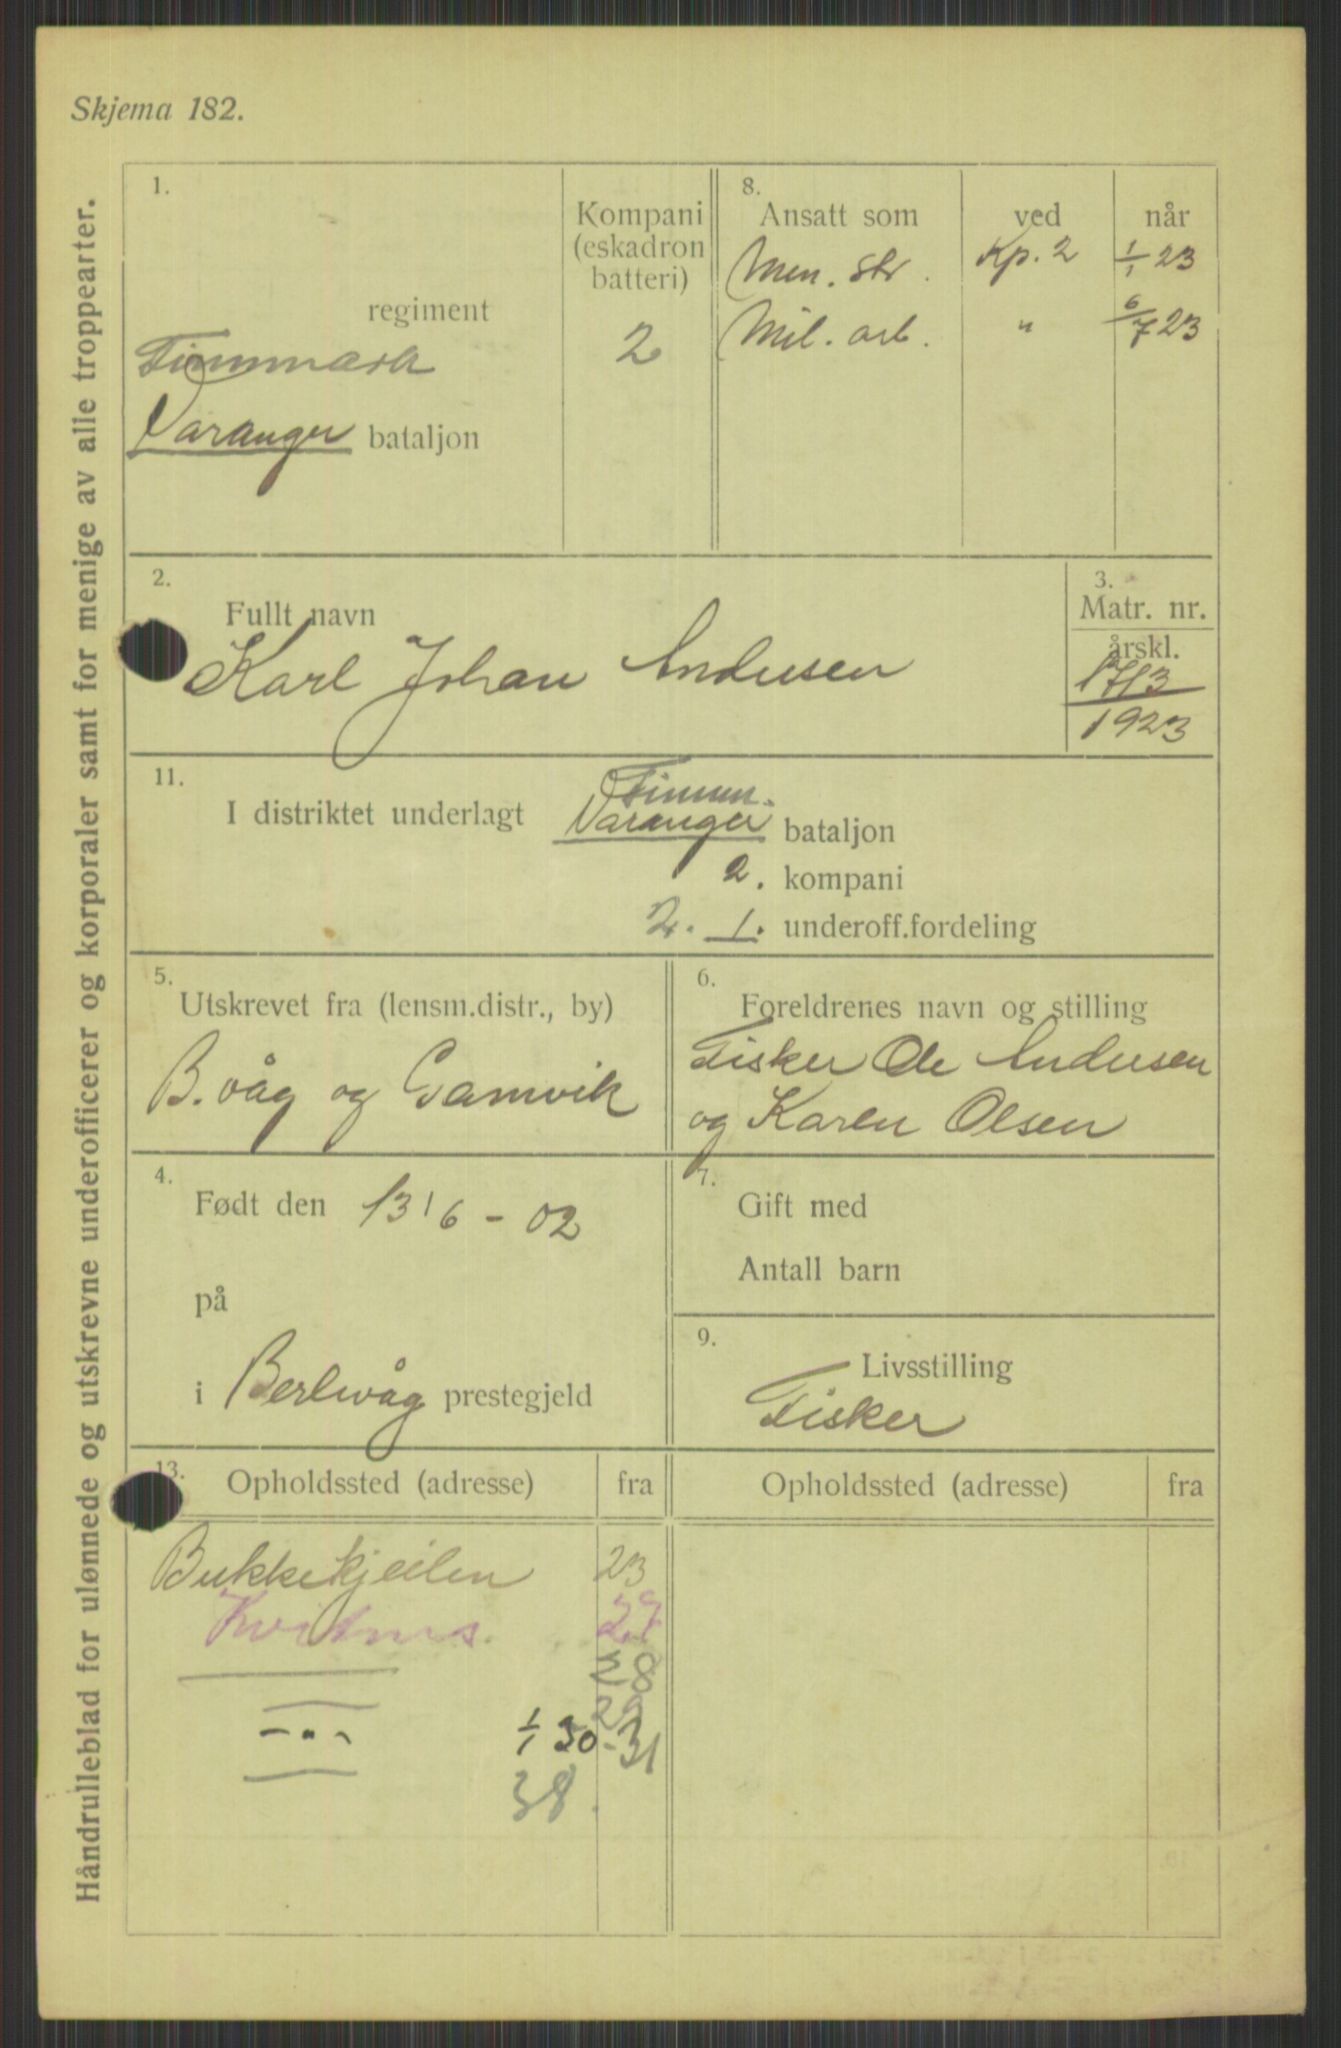 Skjema 182.
Håndrulleblad for ulønnede og utskrevne underofficerer og korporaler samt for menige av alle troppearter.
1.
regiment
Finnmark
Varanger bataljon
Kompani
(eskadron
batteri)
2
8.
Ansatt som ved når
Men. str. Kp. 2 1/1 23
Mil. arb. " 6/7 23
2.
Fullt navn
Karl Johan Andersen
3.
Matr. nr.
årskl.
1713
1923
11.
Finnm.
I distriktet underlagt Varanger bataljon
2. kompani
2. 1. underoff.fordeling
5.
Utskrevet fra (lensm.distr., by)
B.våg og Gamvik
6.
Foreldrenes navn og stilling
Fisker Ole Andersen
og Karen Olsen
4.
Født den 13/6 - 02
på
i Berlevåg prestegjeld
7.
Gift med
Antall barn
9.
Livsstilling
Fisker
13.
Opholdssted (adresse) fra
Opholdssted (adresse) fra
Bukkekjeilen 23
Kvitnes. 27
28
29
-"- 1/1 30-31
38.